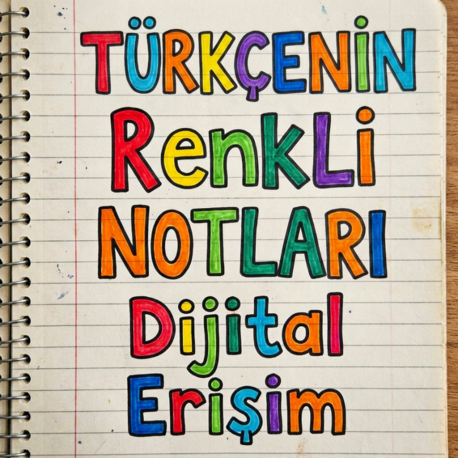 TÜRKÇENİN
RenKLi
NOTLARI
Dijital
Erişim